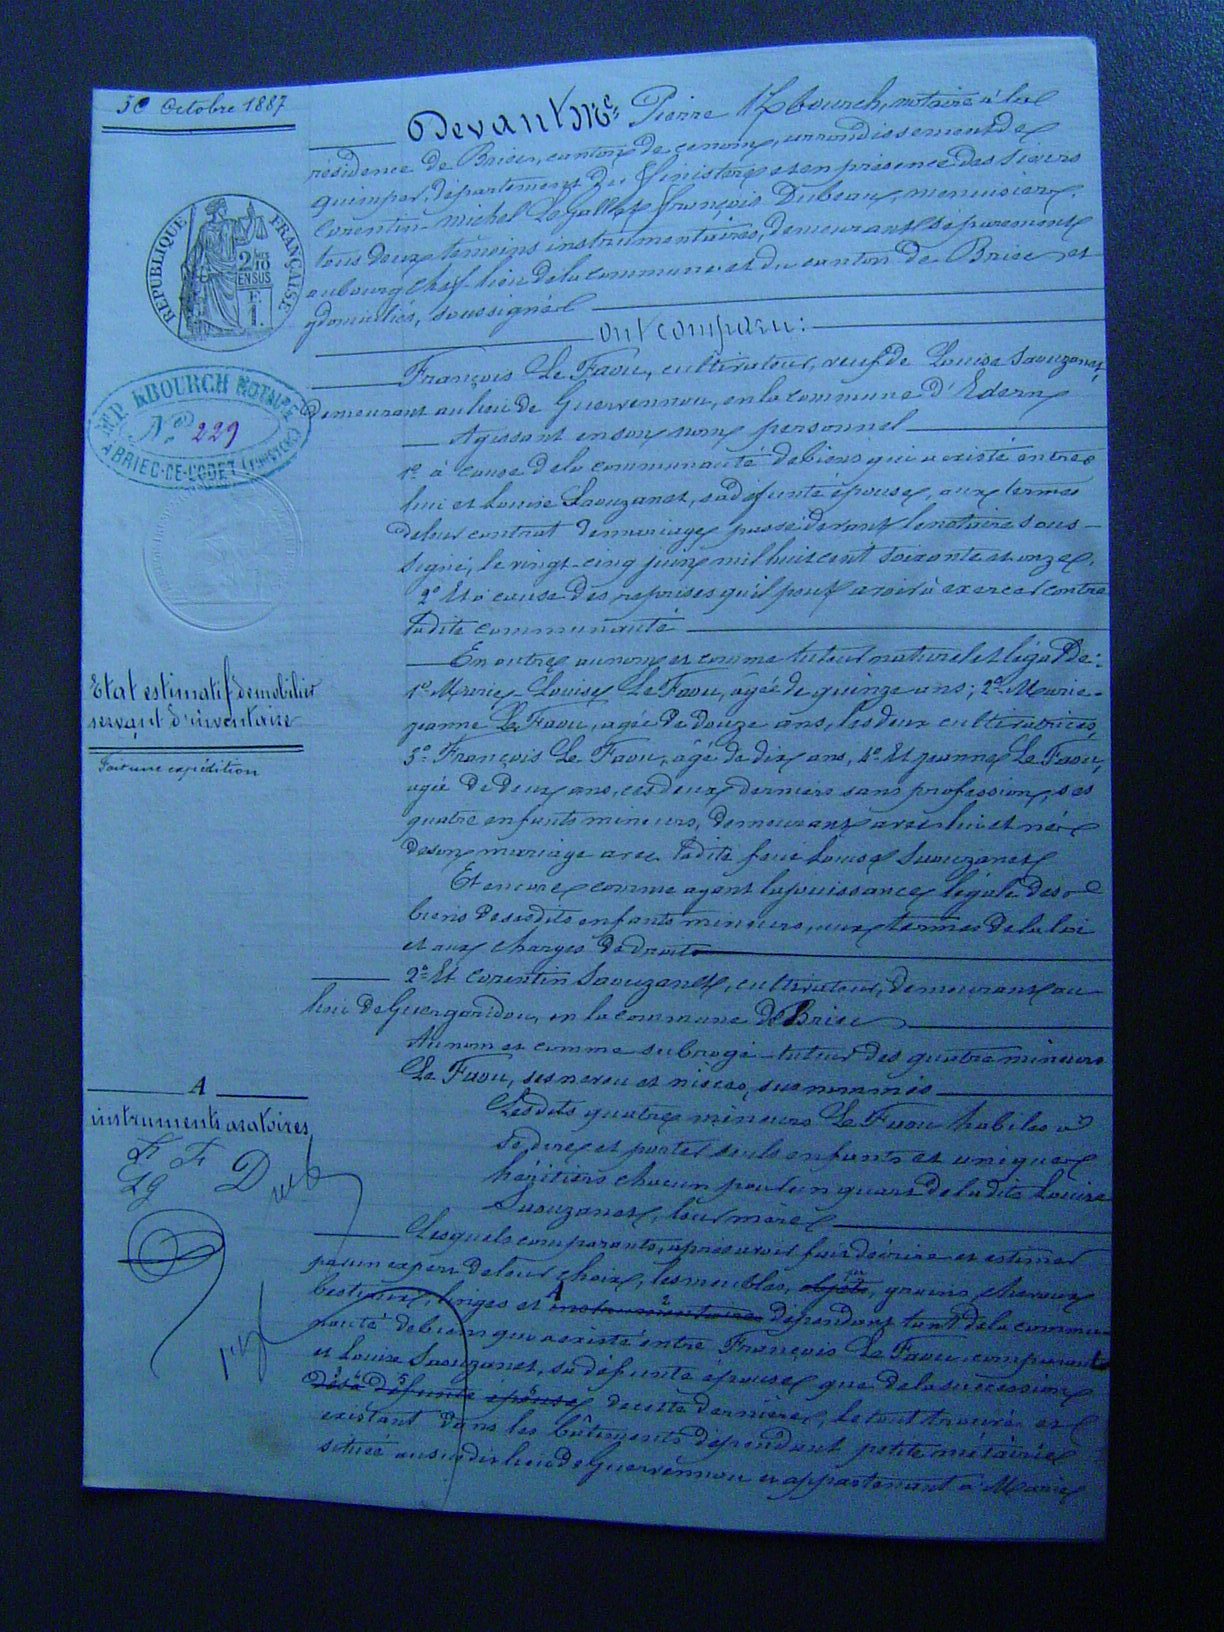 Octobre 1887
Devant Me. Pierre Kbourch, notaire à la
résidence de Briec, canton de ce nom, arrondissement de
quimper, département du Finistère et en présence des sieurs
Corentin-Michel Le Gall et françois Dubeau, menuisier,
tous deux témoins instrumentaires, demeurant séparément
au bourg chef-lieu de la commune et du canton de Briec et
y domiciliés, soussignés
ont comparu:
François Le Faou, cultivateur, veuf de Louise Saouzanet,
Demeurant au lieu de Guervennou, en la commune d'Edern
Agissant en son nom personnel
1º à cause de la communauté de biens qui a existé entre
lui et Louise Saouzanet, sa défunte épouse, aux termes
de leur contrat de mariage passé devant le notaire sous-
signé, le vingt-cinq juin mil huit cent soixante et onze.
2º Et à cause des reprises qu'il peut avoir à exercer contre
ladite communauté
En outre au nom et comme tuteur naturel et légal de:
1º Marie Louise Le Faou, âgée de quinze ans; 2º Marie-
jeanne Le Faou, agée de douze ans, les deux cultivatrices,
3º François Le Faou, âgé de dix ans, 4º Et jeanne Le Faou,
agée de deux ans, ces deux derniers sans profession, ses
quatre enfants mineurs, demeurant avec lui et nés
de son mariage avec ladite feue Louise Saouzanet
Et encore comme ayant la jouissance légale des
biens de sesdits enfants mineurs, aux termes de la loi
et aux charges de droit
2º Et Corentin Saouzanet, cultivateur, demeurant au
lieu de Guergaridou, en la commune de Briec
Au nom et comme subrogé-tuteur des quatre mineurs
Le Faou, ses neveu et nièces, susnommés
Lesdits quatre mineurs Le Faou habiles à
se dire et porter seuls enfants et uniques
héritiers chacun pour un quart de ladite Louise
Saouzanet, leur mère
Lesquels comparants, après avoir fait décrire et estimer
par un expert de leur choix, les meubles, objets, grains, chevaux
bestiaux, linges et A instrumentaires dépendant tant de la commu-
nauté de biens qui a existé entre François Le Faou, comparant
et Louise Saouzanet, sa défunte épouse que de la succession
de sa défunte épouse de cette dernière, le tout trouvé et
existant dans les bâtiments dépendant petite métairie
située au susdit lieu de Guervennou et appartenant à Marie
RÉPUBLIQUE FRANÇAISE
2/10
EN SUS
F.
1.
M.P. KBOURCH NOTAIRE
Nº 229
A BRIEC-DE-L'ODET (FINISTÈRE)
Etat estimatif de mobilier
servant d'inventaire
Fait une expédition
A
instruments aratoires
L F
Lg D